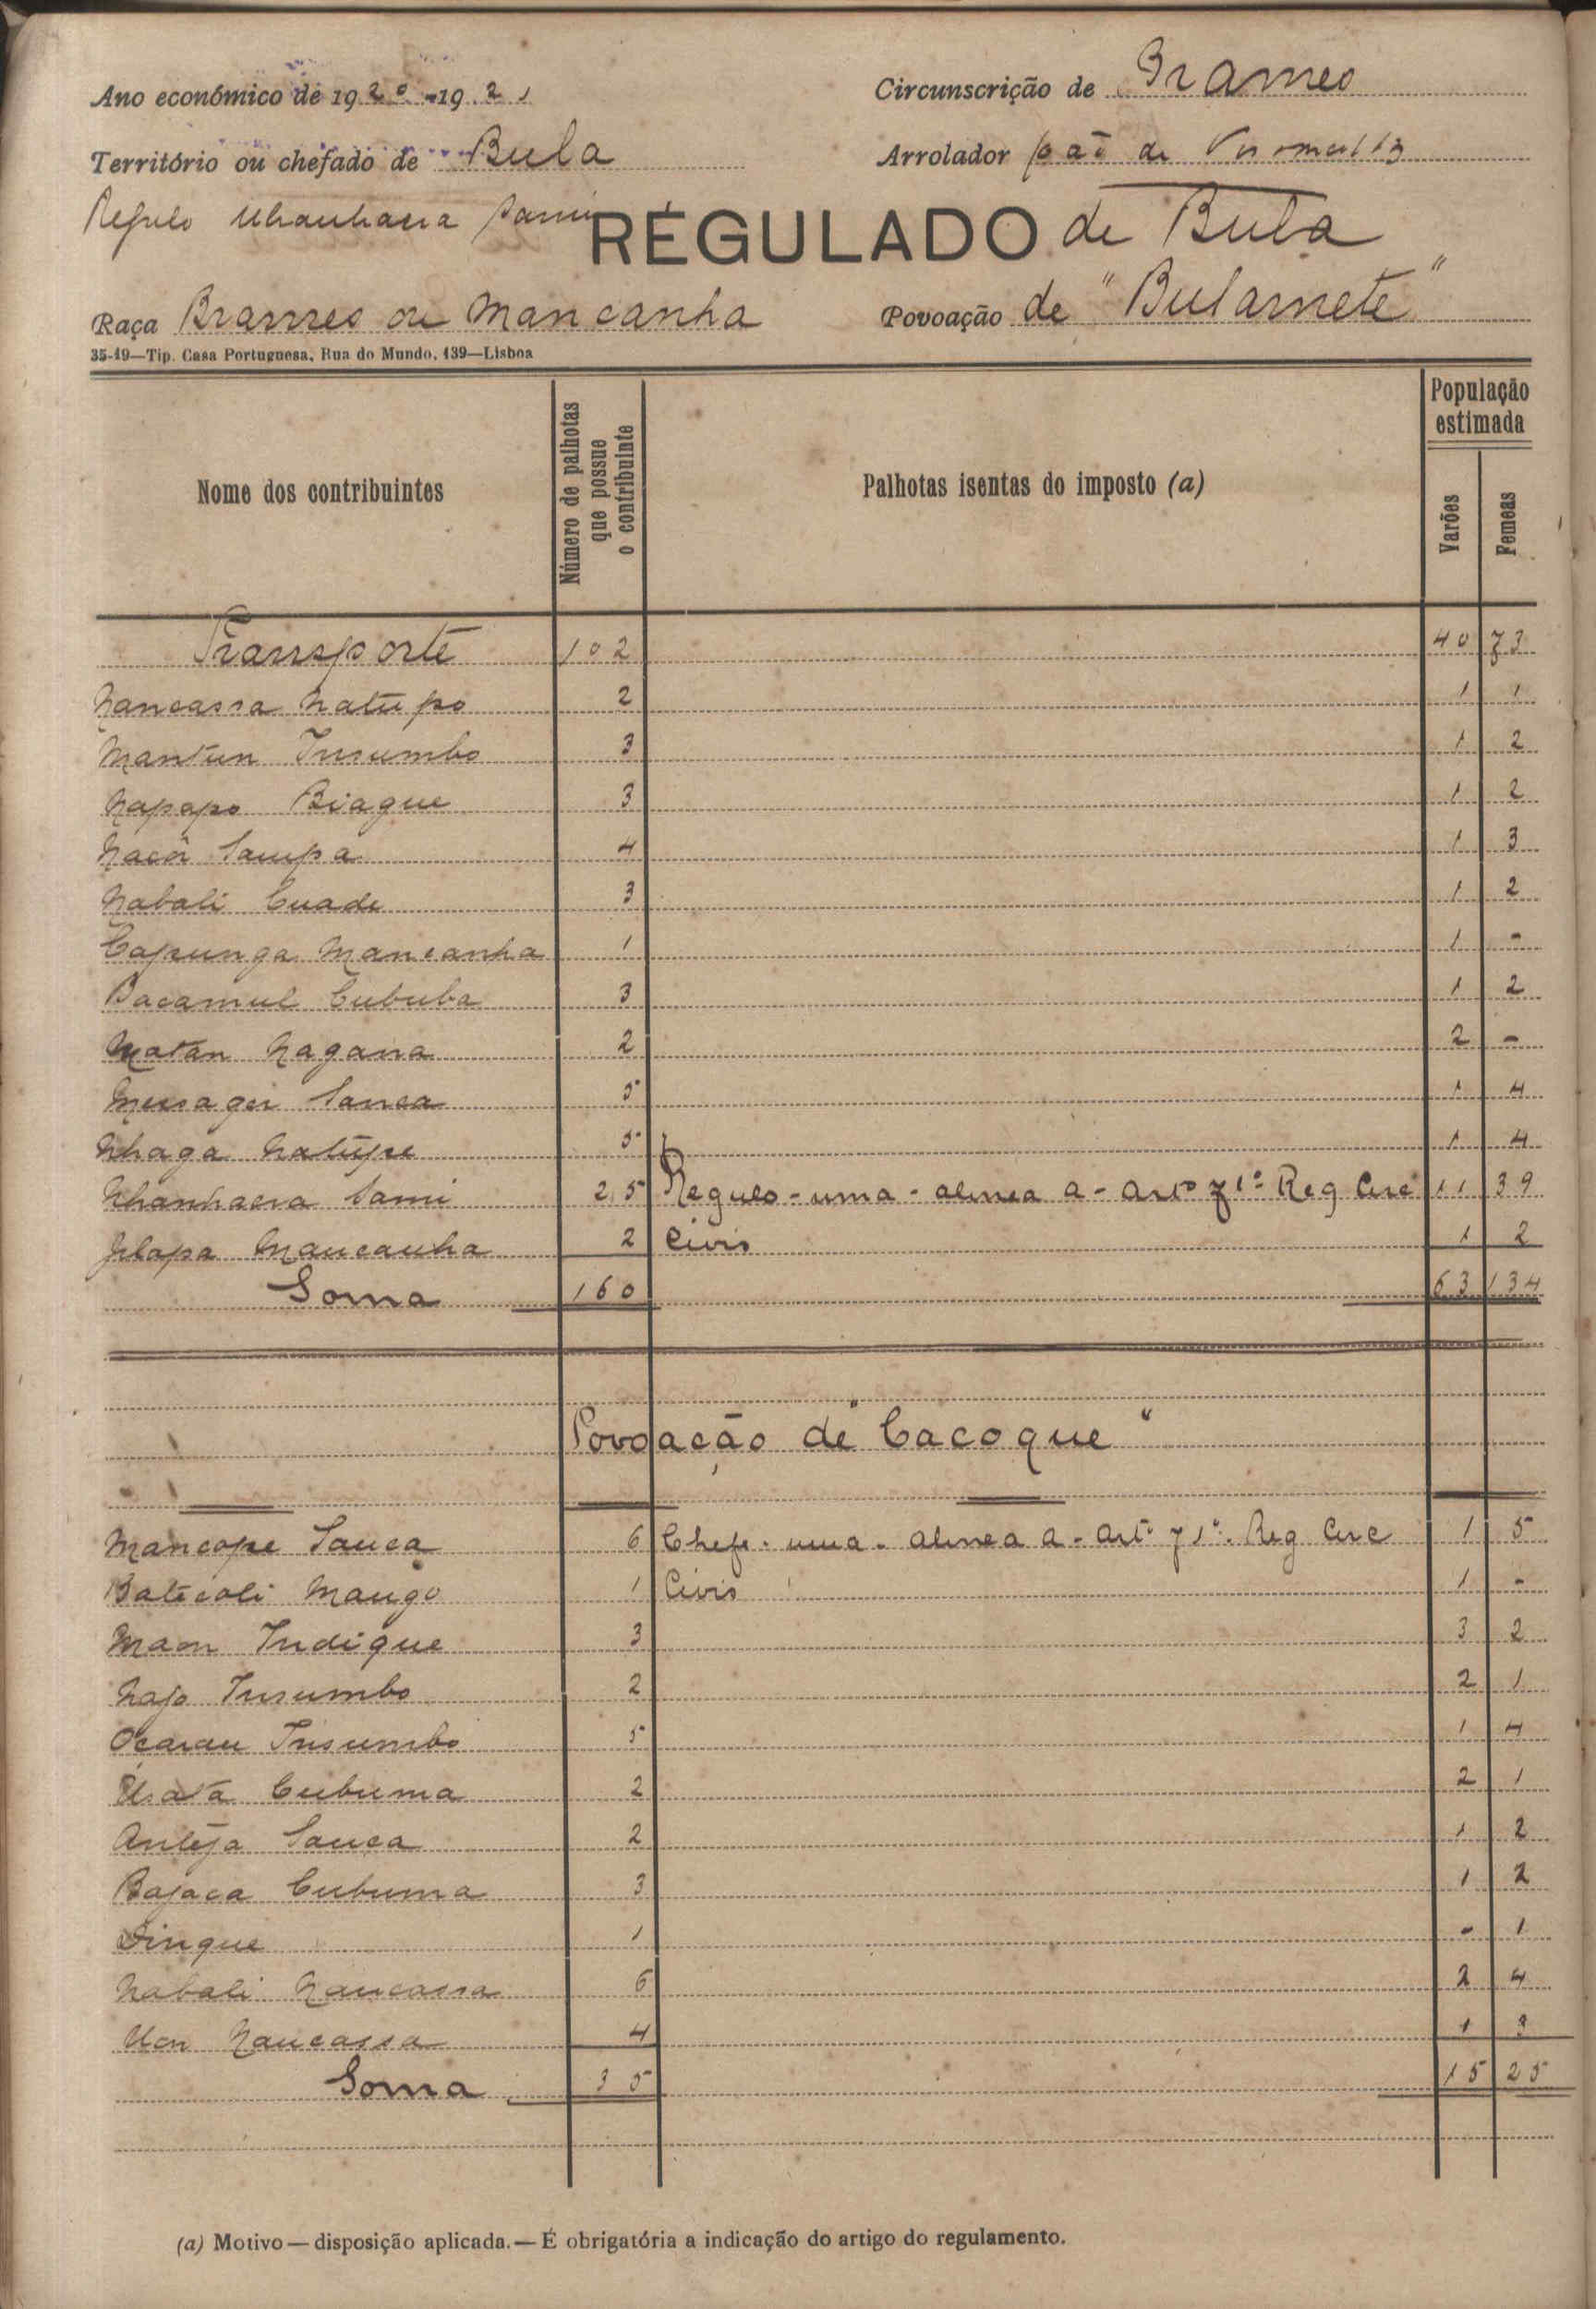 Ano económico de 1920-1921 Circunscrição de Brames
Território ou chefado de Bula Arrolador João de
Regulo Nhanhacra Sami RÉGULADO de Bula
Raça Brames ou Mancanha Povoação de "Bularnete"
35-19—Tip. Casa Portuguesa, Rua do Mundo, 139—Lisboa
Nome dos contribuintes
Número de palhotas
que possue
o contribuinte
Palhotas isentas do imposto (a)
População
estimada
Varões
Femeas
Transporte 102 40 73
Nancassa Natupo 2 1 1
Mantun Insumbo 3 1 2
Napapo Biague 3 1 2
Nacôr Sampa 4 1 3
Nabali Cuade 3 1 2
Capunga Mancanha 1 1 -
Bacamul Cububa 3 1 2
Natan Nagana 2 2 -
Sanca 5 1 4
Nhaga Natúpe 5 1 4
Nhanhacra Sami 25 Regulo - uma - alinea a - artº 71º Reg Circ 11 39
Mancanha 2 Civis 1 2
Soma 160 63 134
Povoação de "Cacoque"
Mancope Sanca 6 Chefe - uma - alinea a - artº 71º - Reg Circ 1 5
Batecoli Mango 1 Civis 1 -
Maon Indique 3 3 2
Najo Insumbo 2 2 1
Ocarau Insumbo 5 1 4
Cubuma 2 2 1
Anteja Sanca 2 1 2
Bajaca Cubuma 3 1 2
Dingue 1 - 1
Nabali Nancassa 6 2 4
Uon Nancassa 4 1 3
Soma 35 15 25
(a) Motivo — disposição aplicada. — É obrigatória a indicação do artigo do regulamento.